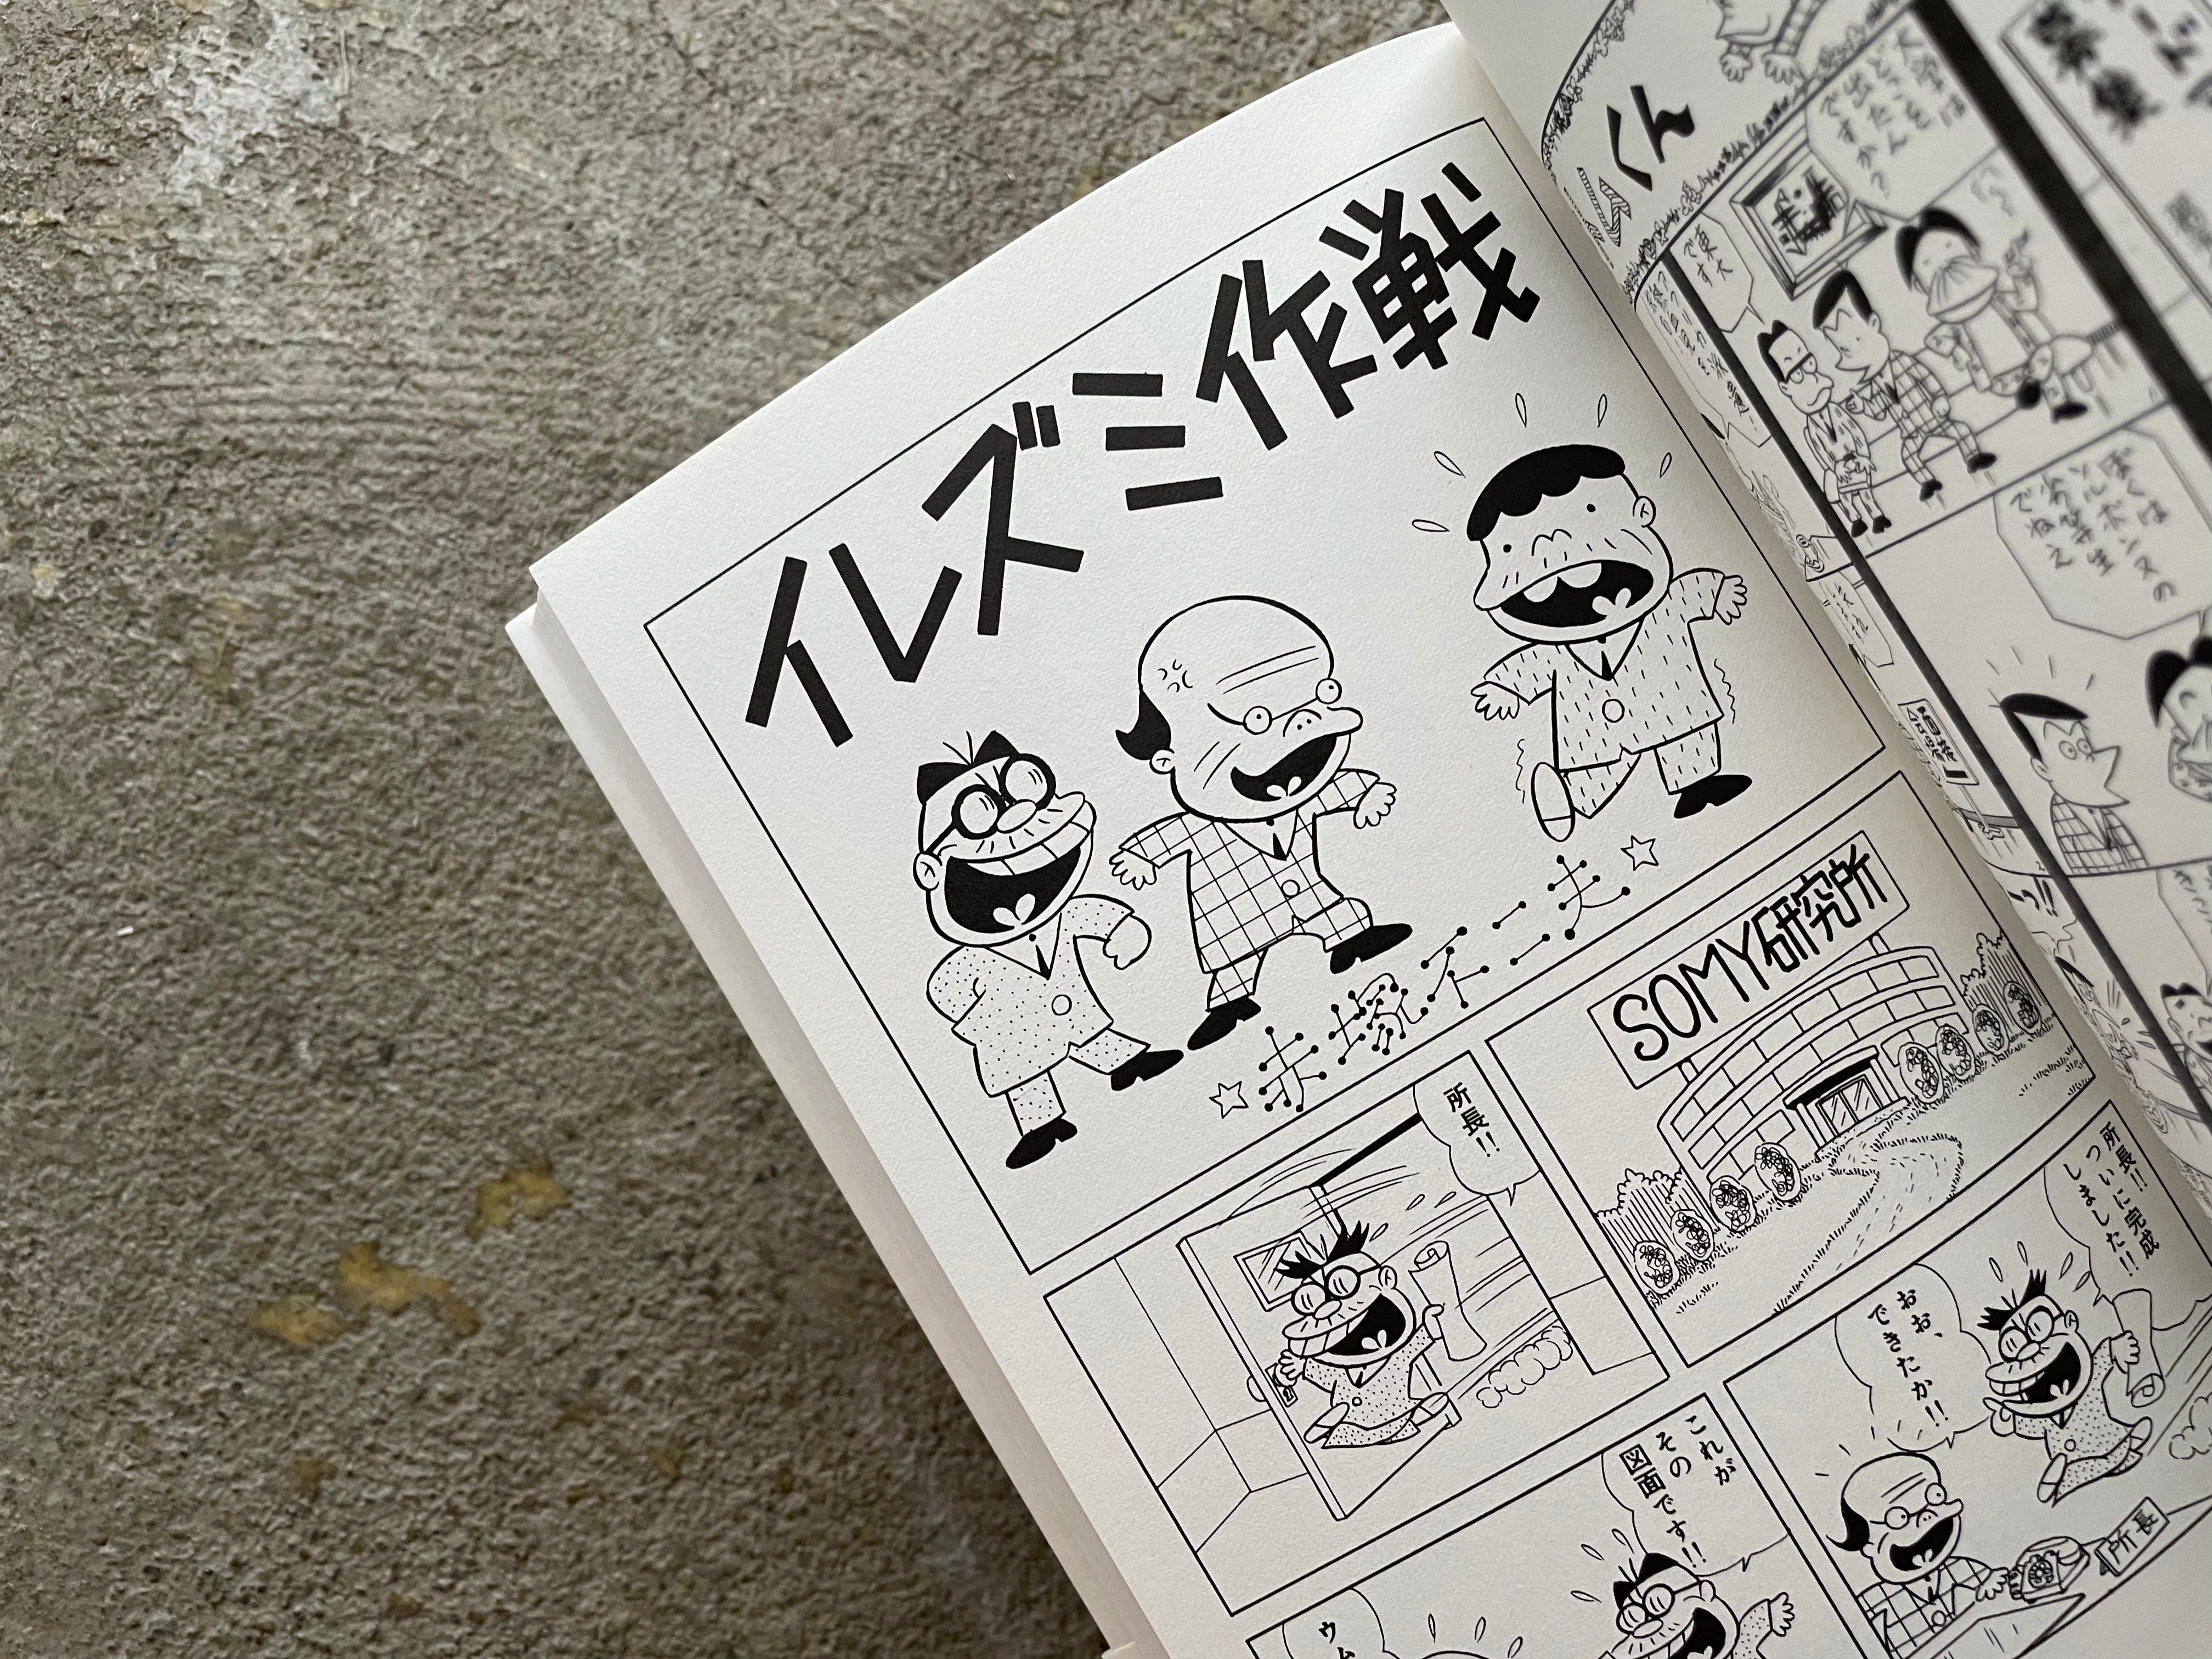 イレズミ作戦
☆赤塚不二夫☆
SOMY研究所
所長!!
所長!!
ついに完成
しました!!
おお、
できたか!!
所長
これが
その
図面です!!
くん
大学は
どこを
出たん
ですか?
東大
です
ぼくは
ソルボンヌの
劣等生
でねえ